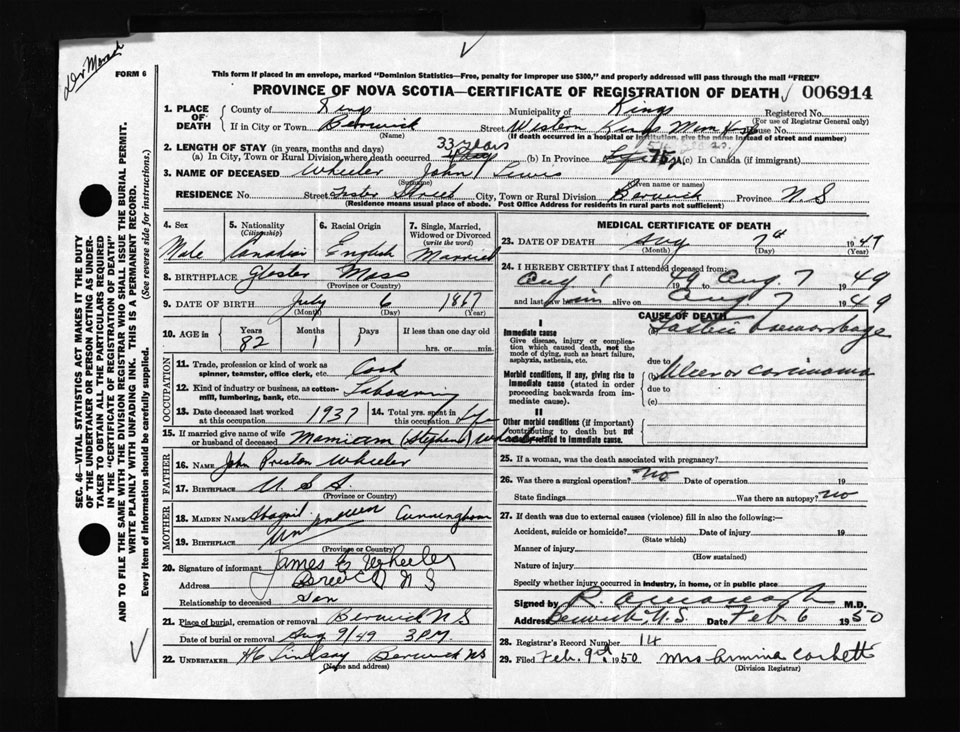 Dr Morad
FORM 6
This form if placed in an envelope, marked "Dominion Statistics—Free, penalty for improper use $300," and properly addressed will pass through the mail "FREE"
PROVINCE OF NOVA SCOTIA—CERTIFICATE OF REGISTRATION OF DEATH 006914
SEC. 46—VITAL STATISTICS ACT MAKES IT THE DUTY
OF THE UNDERTAKER OR PERSON ACTING AS UNDER-
TAKER TO OBTAIN ALL THE PARTICULARS REQUIRED
IN THE "CERTIFICATE OF REGISTRATION OF DEATH"
AND TO FILE THE SAME WITH THE DIVISION REGISTRAR WHO SHALL ISSUE THE BURIAL PERMIT.
WRITE PLAINLY WITH UNFADING INK. THIS IS A PERMANENT RECORD.
Every item of information should be carefully supplied. (See reverse side for instructions.)
1. PLACE OF DEATH
County of Kings Municipality of Kings Registered No.
(For use of Registrar General only)
If in City or Town Berwick Street Western Kings Mem Hosp House No.
(Name) (If death occurred in a hospital or institution, give the name instead of street and number)
2. LENGTH OF STAY (in years, months and days) 33 years
(a) In City, Town or Rural Division where death occurred (b) In Province Life 75 (c) In Canada (if immigrant)
3. NAME OF DECEASED Wheeler John Lewis
(Surname) (Given name or names)
RESIDENCE No. Street Foster Street City, Town or Rural Division Berwick Province N S
(Residence means usual place of abode. Post Office Address for residents in rural parts not sufficient)
4. Sex 5. Nationality (Citizenship) 6. Racial Origin 7. Single, Married, Widowed or Divorced (write the word)
Male Canadian English Married
8. BIRTHPLACE Gloster Mass
(Province or Country)
9. DATE OF BIRTH July 6 1867
(Month) (Day) (Year)
10. AGE in Years Months Days If less than one day old
82 1 1 hrs. or min.
OCCUPATION
11. Trade, profession or kind of work as spinner, teamster, office clerk, etc. Cook
12. Kind of industry or business, as cotton-mill, lumbering, bank, etc. Labouring
13. Date deceased last worked at this occupation 1937 14. Total yrs. spent in this occupation Life
15. If married give name of wife or husband of deceased (Stephens) Wheeler
FATHER
16. NAME John Preston Wheeler
17. BIRTHPLACE U. S. A.
(Province or Country)
MOTHER
18. MAIDEN NAME Abagail Cunningham
19. BIRTHPLACE Unknown
(Province or Country)
20. Signature of informant James E Wheeler
Address Berwick N S
Relationship to deceased Son
21. Place of burial, cremation or removal Berwick N S
Date of burial or removal Aug 9/49 3 P.M.
22. UNDERTAKER H C Lindsay Berwick NS
(Name and address)
MEDICAL CERTIFICATE OF DEATH
23. DATE OF DEATH Aug 7th 1949
(Month) (Day) (Year)
24. I HEREBY CERTIFY that I attended deceased from:
Aug 1 1949 to Aug. 7 1949
and last saw him alive on Aug 7 1949
CAUSE OF DEATH
I
Immediate cause
Give disease, injury or complication which caused death, not the mode of dying, such as heart failure, asphyxia, asthenia, etc.
(a) Gastric haemorrhage
due to
Morbid conditions, if any, giving rise to immediate cause (stated in order proceeding backwards from immediate cause).
(b) Ulcer or carcinoma
due to
(c)
II
Other morbid conditions (if important) contributing to death but not related to immediate cause.
25. If a woman, was the death associated with pregnancy?
26. Was there a surgical operation? No Date of operation 19
State findings Was there an autopsy? No
27. If death was due to external causes (violence) fill in also the following:—
Accident, suicide or homicide? Date of injury 19
(State which)
Manner of injury
(How sustained)
Nature of injury
Specify whether injury occurred in industry, in home, or in public place
Signed by M.D.
Address Berwick, N.S. Date Feb 6 1950
28. Registrar's Record Number 14
29. Filed Feb. 9th 1950 Mrs Corbett
(Division Registrar)